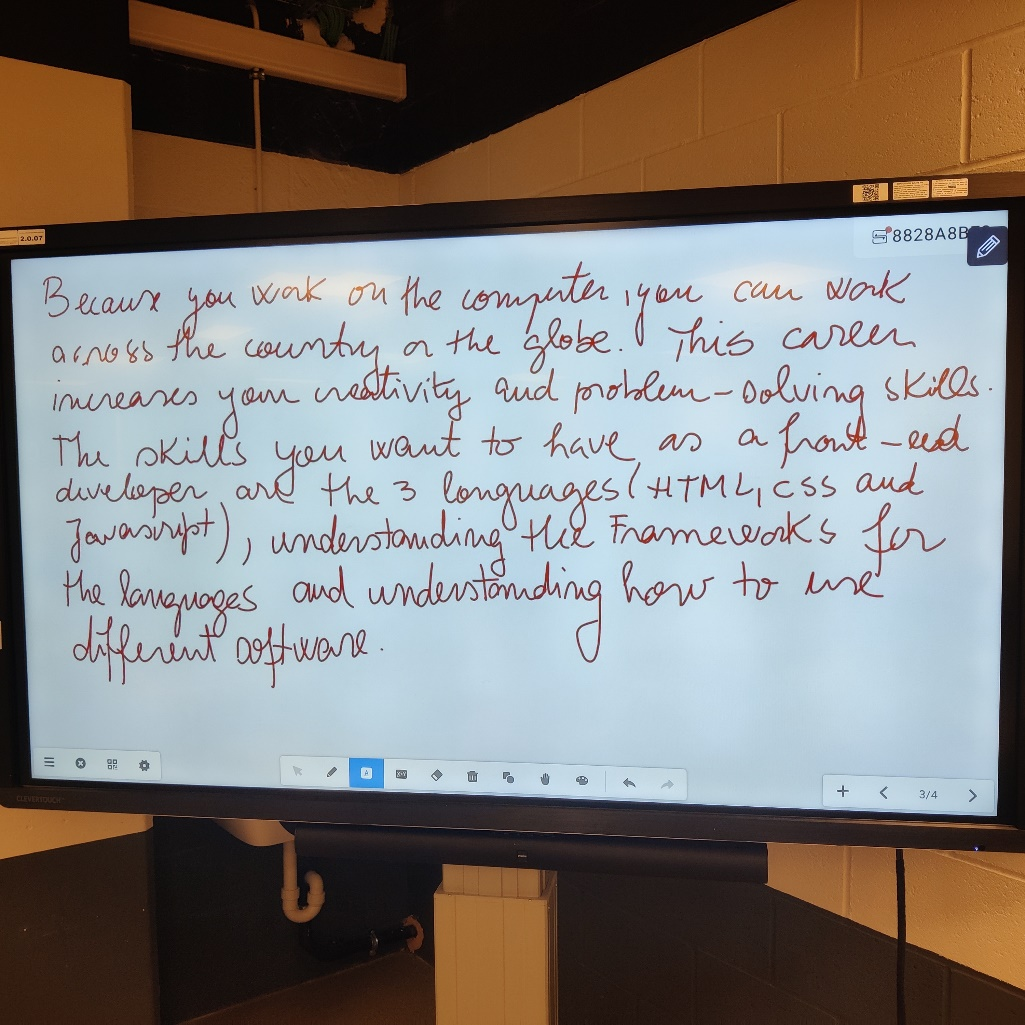 2.0.07
8828A8B
Because you work on the computer, you can work
across the country or the globe. This career
increases your creativity and problem-solving skills.
The skills you want to have as a front-end
developer are the 3 languages (HTML, CSS and
Javascript), understanding the Frameworks for
the languages and understanding how to use
different software.
3/4
CLEVERTOUCH